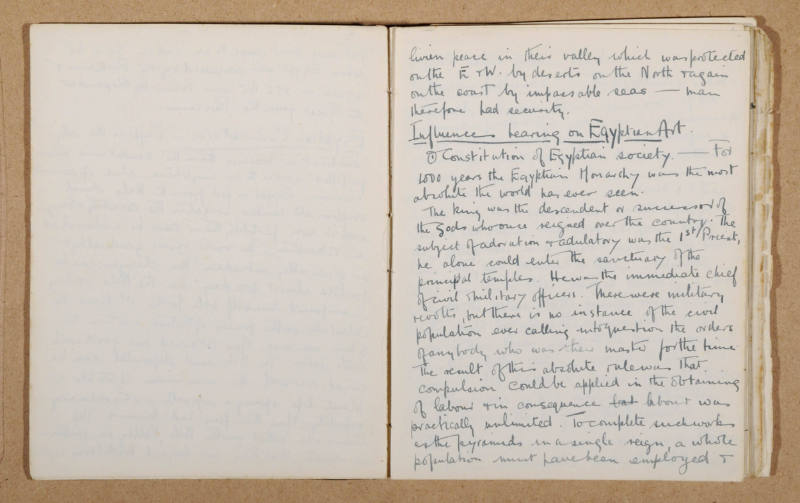 living peace in their valley which was protected
on the E & W. by deserts on the North & again
on the coast by impassable seas — man
therefore had security.
Influences bearing on Egyptian Art.
① Constitution of Egyptian society. — For
1000 years the Egyptian Monarchy was the most
absolute the world has ever seen.
The king was the descendent or successor of
the gods who once reigned over the country. The
subject of adoration & adulatory was the 1st Priest,
he alone could enter the sanctuary of the
principal temples. He was the immediate chief
of civil & military officers. There were military
revolts, but there is no instance of the civil
population ever calling into question the orders
of anybody who was their master for the time
The result of this absolute rule was that
compulsion could be applied in the obtaining
of labour & in consequence labour was
practically unlimited. To complete such works
as the pyramids in a single reign, a whole
population must have been employed &